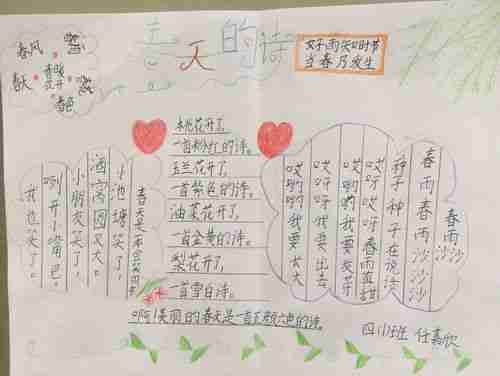 春天的诗
好雨知时节
当春乃发生
春风
春天
春暖
花开
春色
桃花开了,
一首粉红的诗。
玉兰花开了,
一首紫色的诗。
油菜花开了,
一首金黄的诗。
梨花开了,
一首雪白诗。
啊!美丽的春天是一首五颜六色的诗。
小池塘笑了,
酒窝圆又大。
小朋友笑了,
咧开小嘴巴。
我也笑了。
春雨
春雨春雨沙沙沙沙
种子种子在说话
哎呀哎呀春雨真甜
哎哟哎哟我要发芽
哎呀哎呀我要出去
哎哟哎哟我要长大
四(1)班 任嘉欣